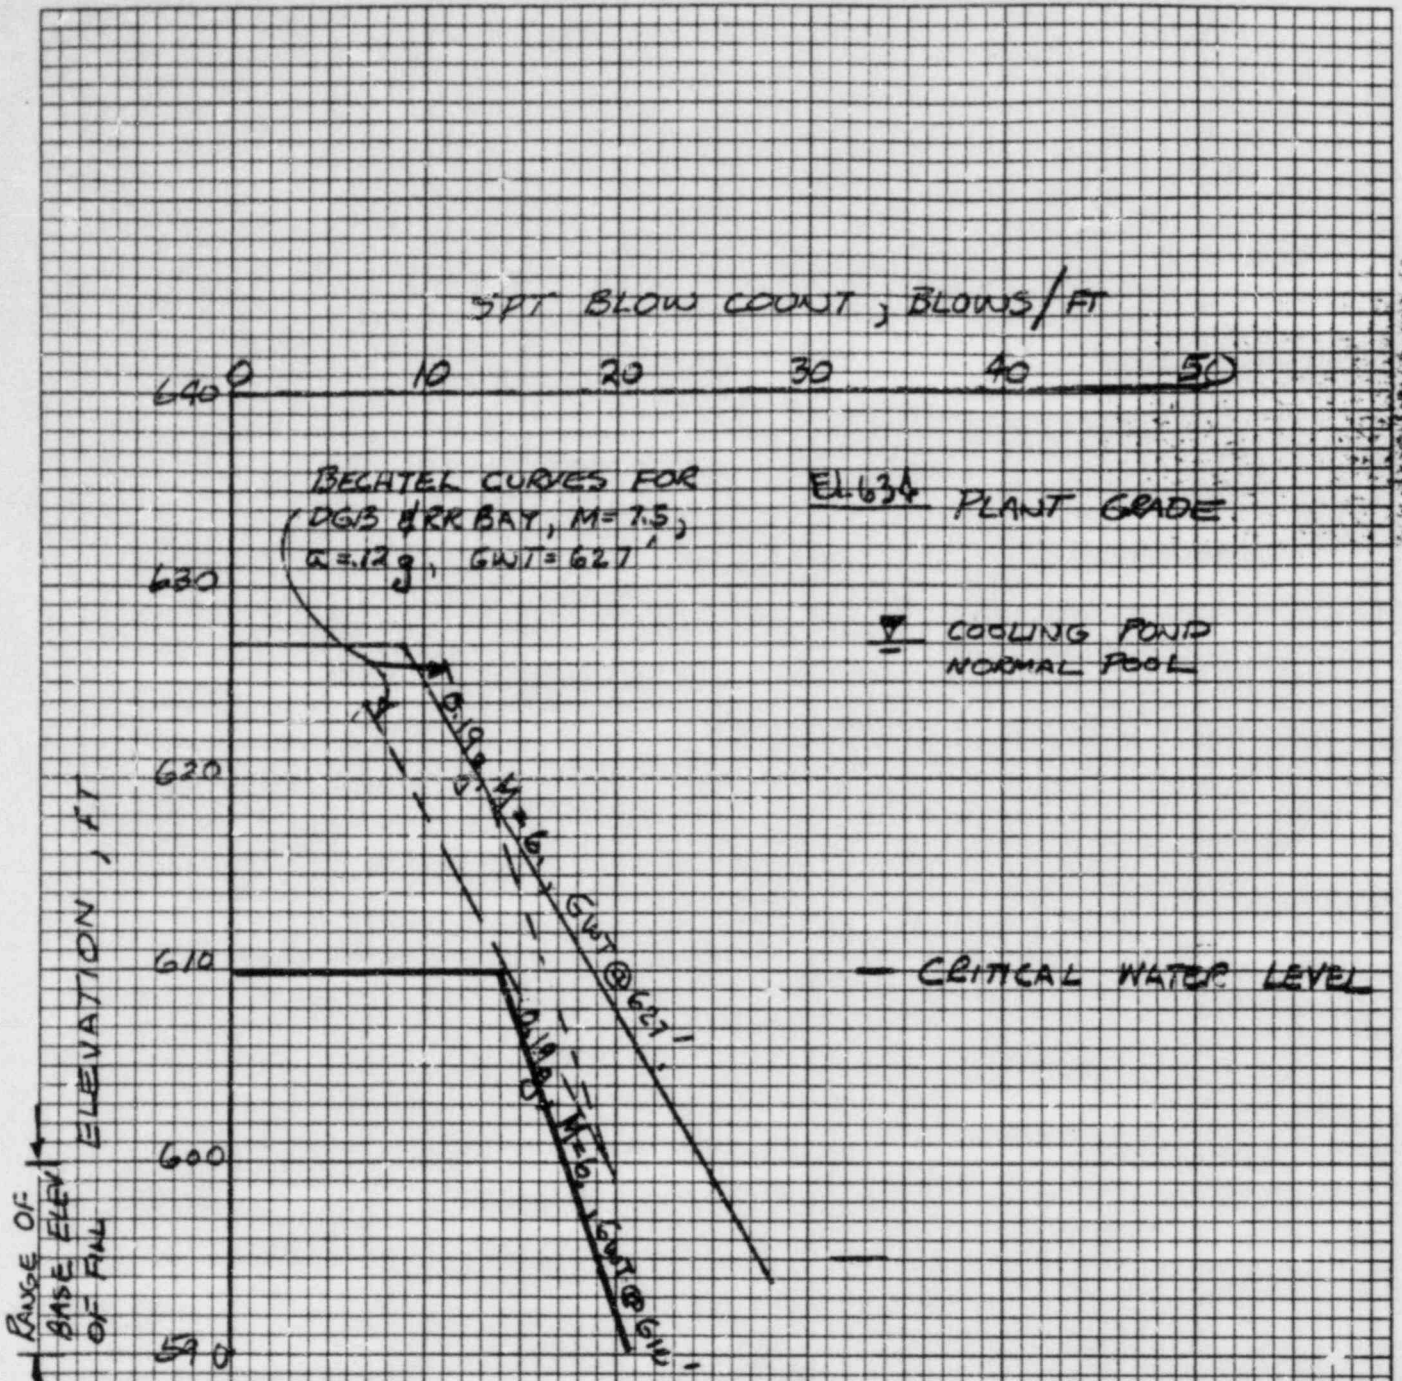 SPT BLOW COUNT, BLOWS/FT
0 10 20 30 40 50
640
BECHTEL CURVES FOR
DGB & RR BAY, M=7.5,
a=.12g, GWT=627'
EL 634 PLANT GRADE
630
COOLING POND
NORMAL POOL
0.19g, M=6, GWT@627'
620
ELEVATION, FT
610
CRITICAL WATER LEVEL
0.19g, M=6, GWT@610'
600
RANGE OF
BASE ELEV
OF FILL
590